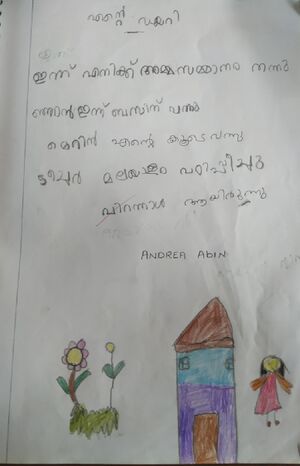 എന്റെ ഡയറി
ഇന്ന് എനിക്ക് അമ്മ സമ്മാനം തന്നു
ഞാൻ ഇന്ന് ബസിന് വന്നു
മെറിൻ എന്റെ കൂടെ വന്നു
ടീച്ചർ മലയാളം പഠിപ്പിച്ചു
പിറന്നാൾ ആയിരുന്നു
ANDREA ABIN